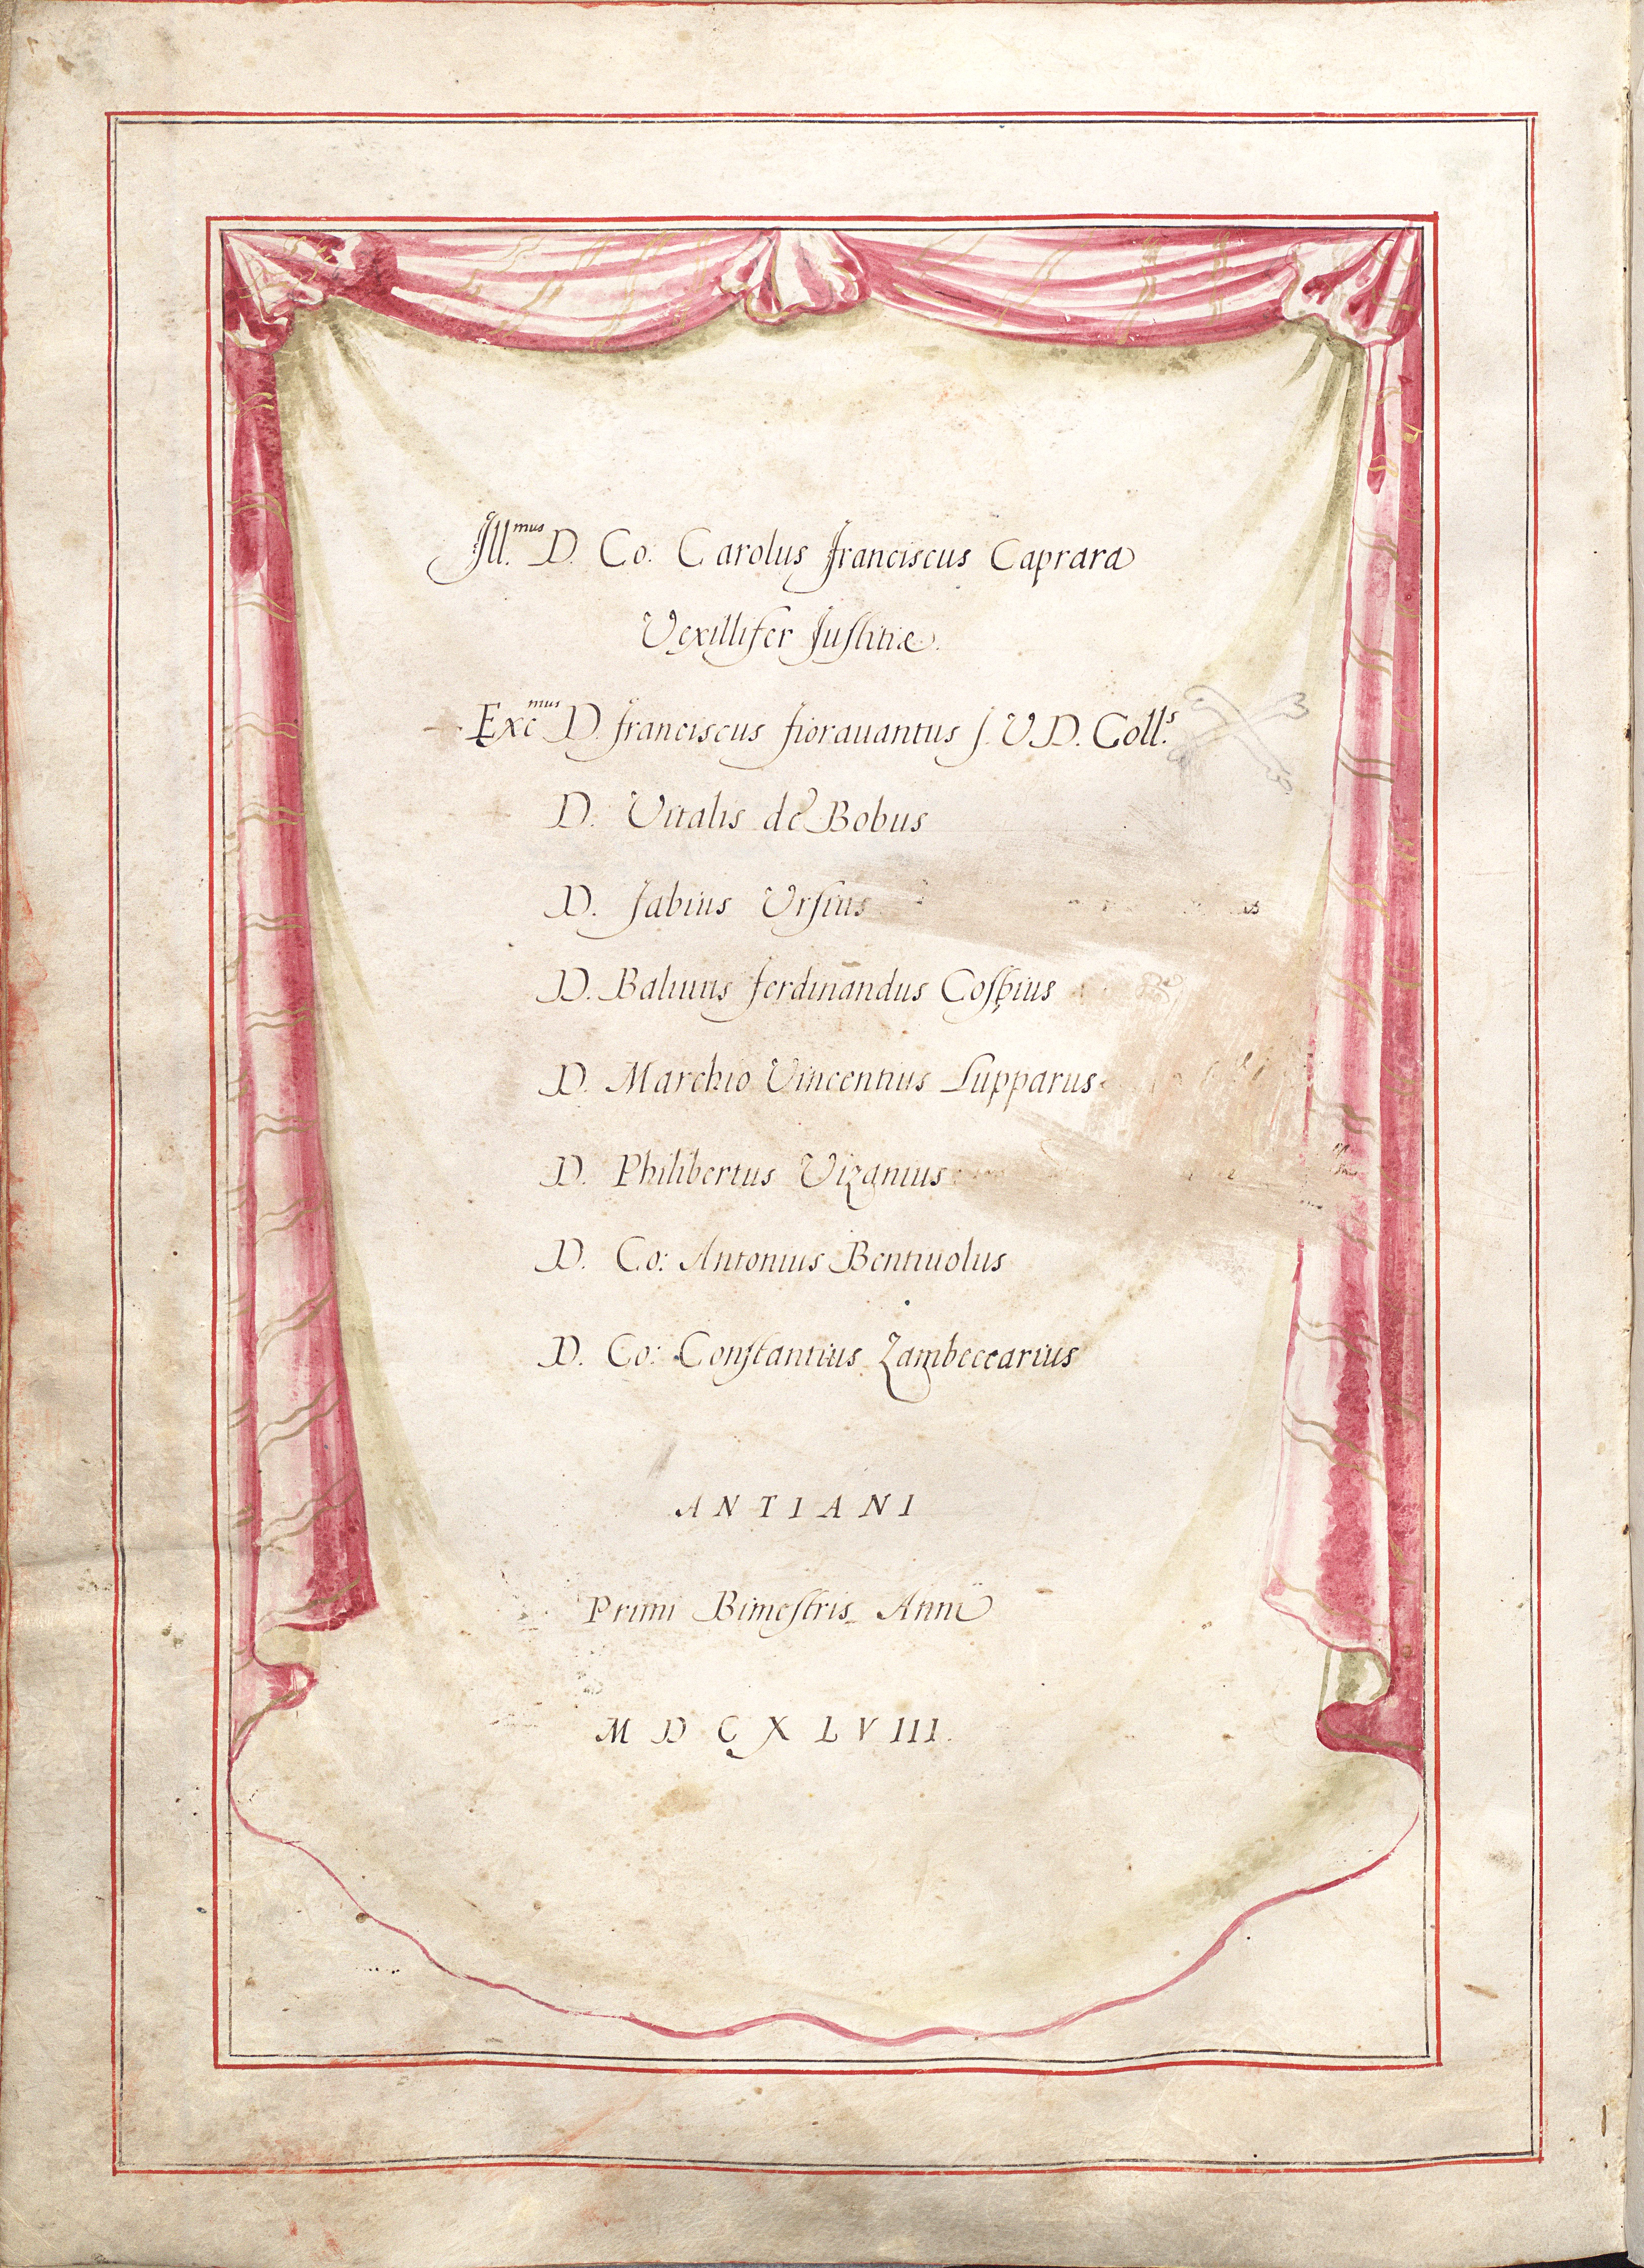 Ill.mus D. Co: Carolus Franciscus Caprara
Vexillifer Iustitiæ.
Excmus D. Franciscus Fiorauantus J. V. D. Coll.s
D. Vitalis de Bobus
D. Fabius Ursius
D. Baliuus Ferdinandus Cospius
D. Marchio Vincentius Lupparus
D. Philibertus Vizanius
D. Co: Antonius Bentiuolus
D. Co: Constantius Zambeccarius
ANTIANI
Primi Bimestris Anni
MDCXLVIII.